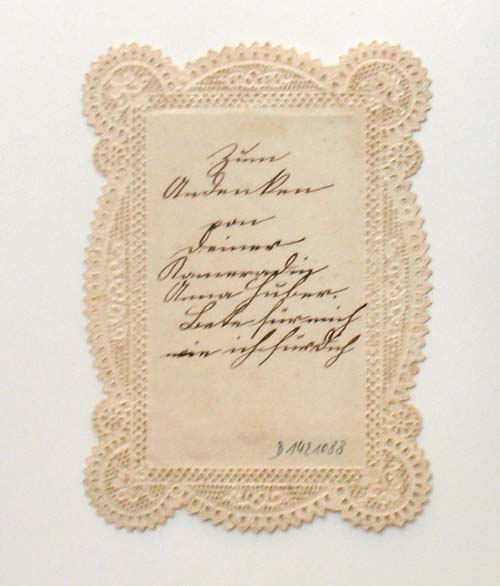 Zum
Andenken
von
deiner
Kameradin
Anna Huber.
Bete für mich
wie ich für dich
D 1421088